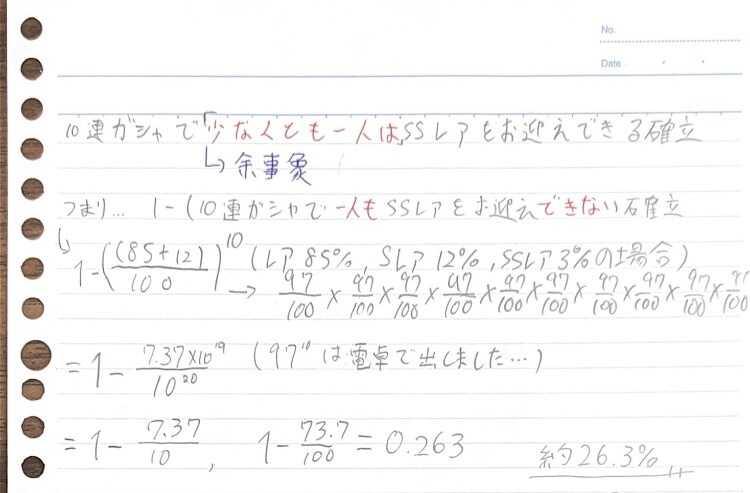 No.
Date
10連ガシャで「少なくとも一人は」SSレアをお迎えできる確立
↳余事象
つまり… 1-(10連ガシャで一人もSSレアをお迎えできない確立
↳1-((85+12)/100)^10 (レア85%, Sレア12%, SSレア3%の場合)
→ 97/100 × 97/100 × 97/100 × 97/100 × 97/100 × 97/100 × 97/100 × 97/100 × 97/100 × 97/100
= 1 - 7.37×10^19/10^20 (97^10は電卓で出しました…)
= 1 - 7.37/10, 1 - 73.7/100 = 0.263 約26.3%〃